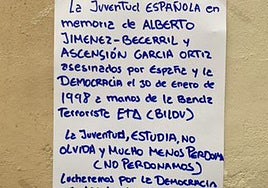 La Juventud ESPAÑOLA en
memoria de ALBERTO
JIMENEZ-BECERRIL y
ASCENSIÓN GARCIA ORTIZ
asesinados por España y la
DEMOCRACIA el 30 de enero de
1998 a manos de la Banda
Terrorista ETA (BILDU)
La Juventud, ESTUDIA, NO
OLVIDA y MUCHO MENOS PERDONA
(NO PERDONAMOS)
Lucharemos por la DEMOCRACIA